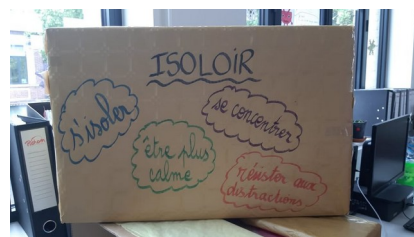 ISOLOIR
s'isoler
se concentrer
être plus
calme
résister aux
distractions